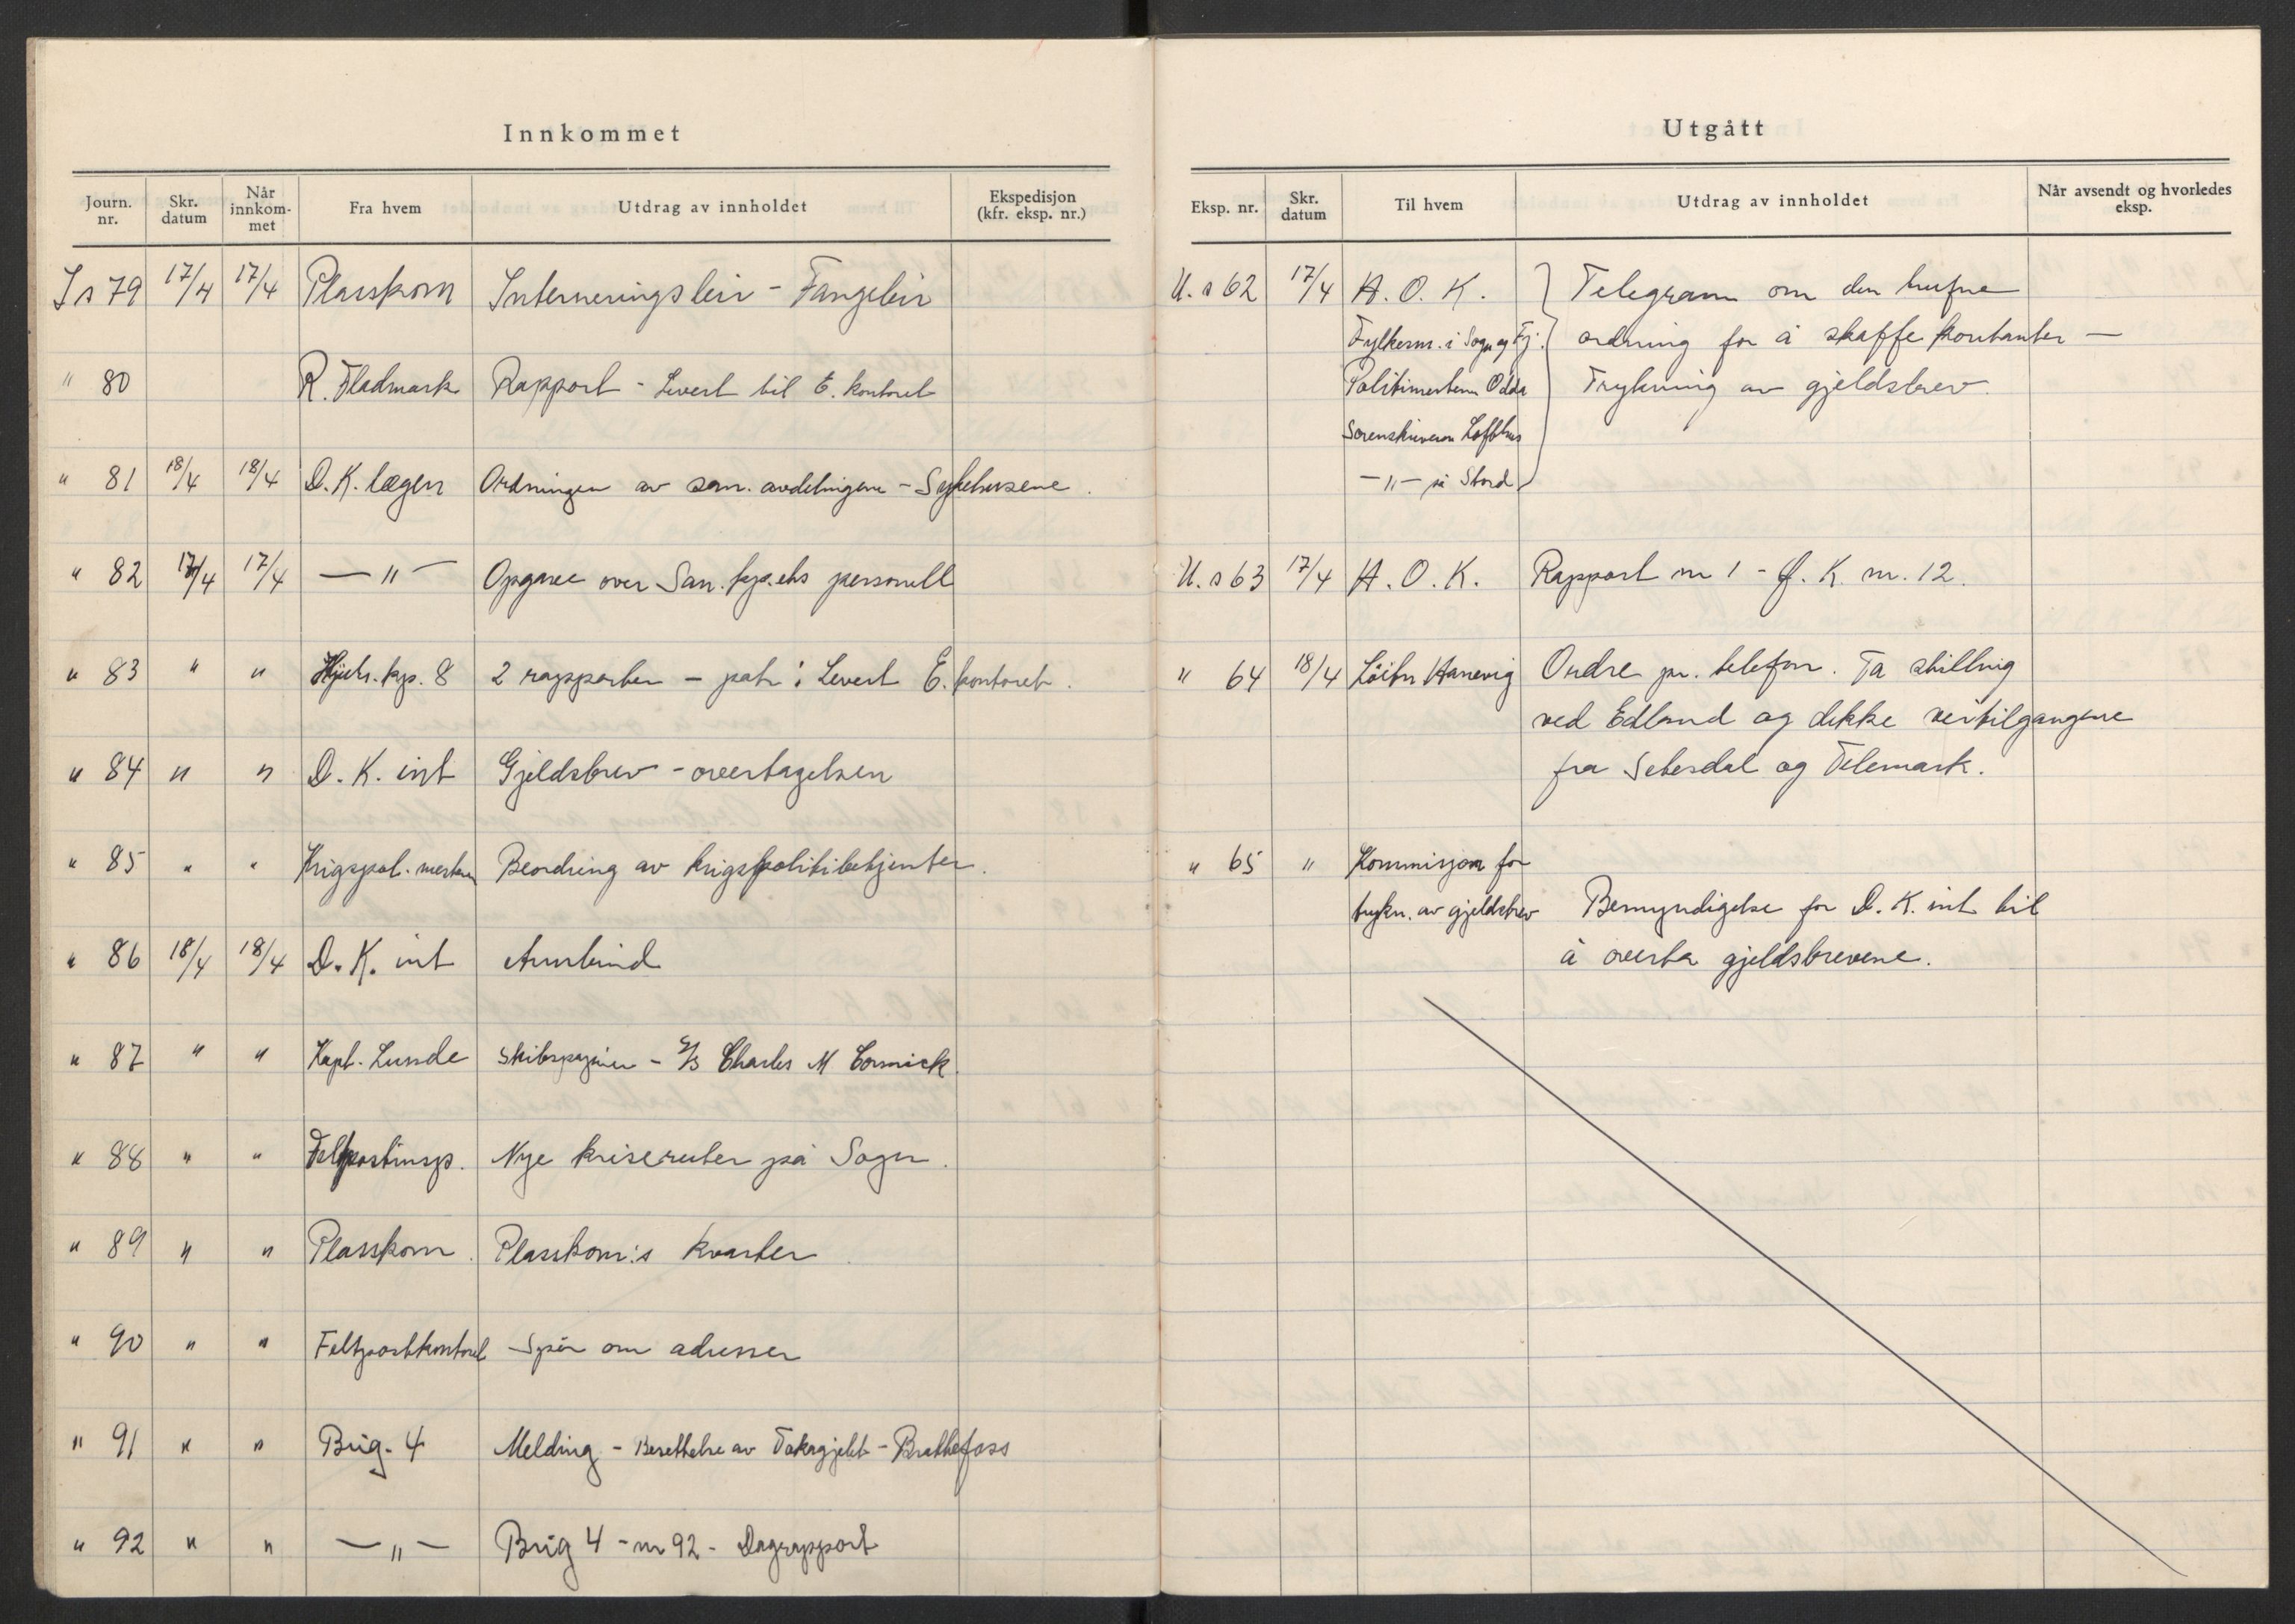 Innkommet
Journ. nr. Skr. datum Når innkommet Fra hvem Utdrag av innholdet Ekspedisjon (kfr. eksp. nr.)
Is 79 17/4 17/4 Plasskom Interneringsleir - Fangeleir
" 80 R. Fladmark Rapport - Levert til E. kontoret
" 81 18/4 18/4 D.K. lægen Ordningen av san. avdelingene - Sykehusene.
" 82 17/4 17/4 — " — Opgave over San. kp. ets personell
" 83 " " Hjeh. kp. 8 2 rapporter - patr: Levert E. kontoret.
" 84 " " D.K. int Gjeldsbrev - overtagelsen
" 85 " " Krigspol. mesteren Beordring av krigspolitibetjenter.
" 86 18/4 18/4 D.K. int Armbind
" 87 " " Kapt. Lunde Skibspapirer - S/S Charles M Cormick.
" 88 " " Feltpostinsp. Nye kriseruter på Sogn.
" 89 " " Plasskom. Plasskom:s kvarter
" 90 " " Feltpostkontoret Spør om adresser
" 91 " " Brig. 4 Melding - Besettelse av Tokagjelet - Brattefoss
" 92 " " — " — Brig 4 - nr 92 - Dagrapport
Utgått
Eksp. nr. Skr. datum Til hvem Utdrag av innholdet Når avsendt og hvorledes eksp.
U.s 62 17/4 H.O.K. Telegram om den trufne
Fylkesm. i Sogn og Fj. ordning for å skaffe kontanter —
Politimesteren Odda Trykning av gjeldsbrev.
Sorenskriveren Lofthus
— " — på Stord
U.s 63 17/4 H.O.K. Rapport nr 1 - D.K. nr. 12.
" 64 18/4 Løitn Hanevig Ordre pr. telefon. Ta stilling
ved Edland og dekke veitilgangene
fra Setesdal og Telemark.
" 65 " Kommisjon for
trykn. av gjeldsbrev Bemyndigelse for D.K. int til
å overta gjeldsbrevene.